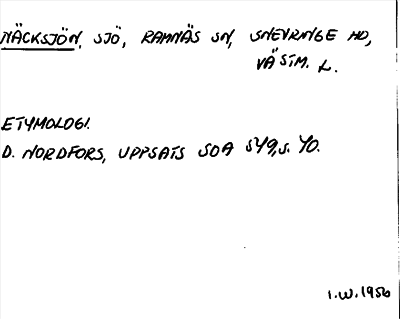 NÄCKSJÖN, SJÖ, RAMNÄS SN, SNEVRINGE HD,
VÄSTM. L.
ETYMOLOGI.
D. NORDFORS, UPPSATS SOA 549, S. 40.
I.W. 1956